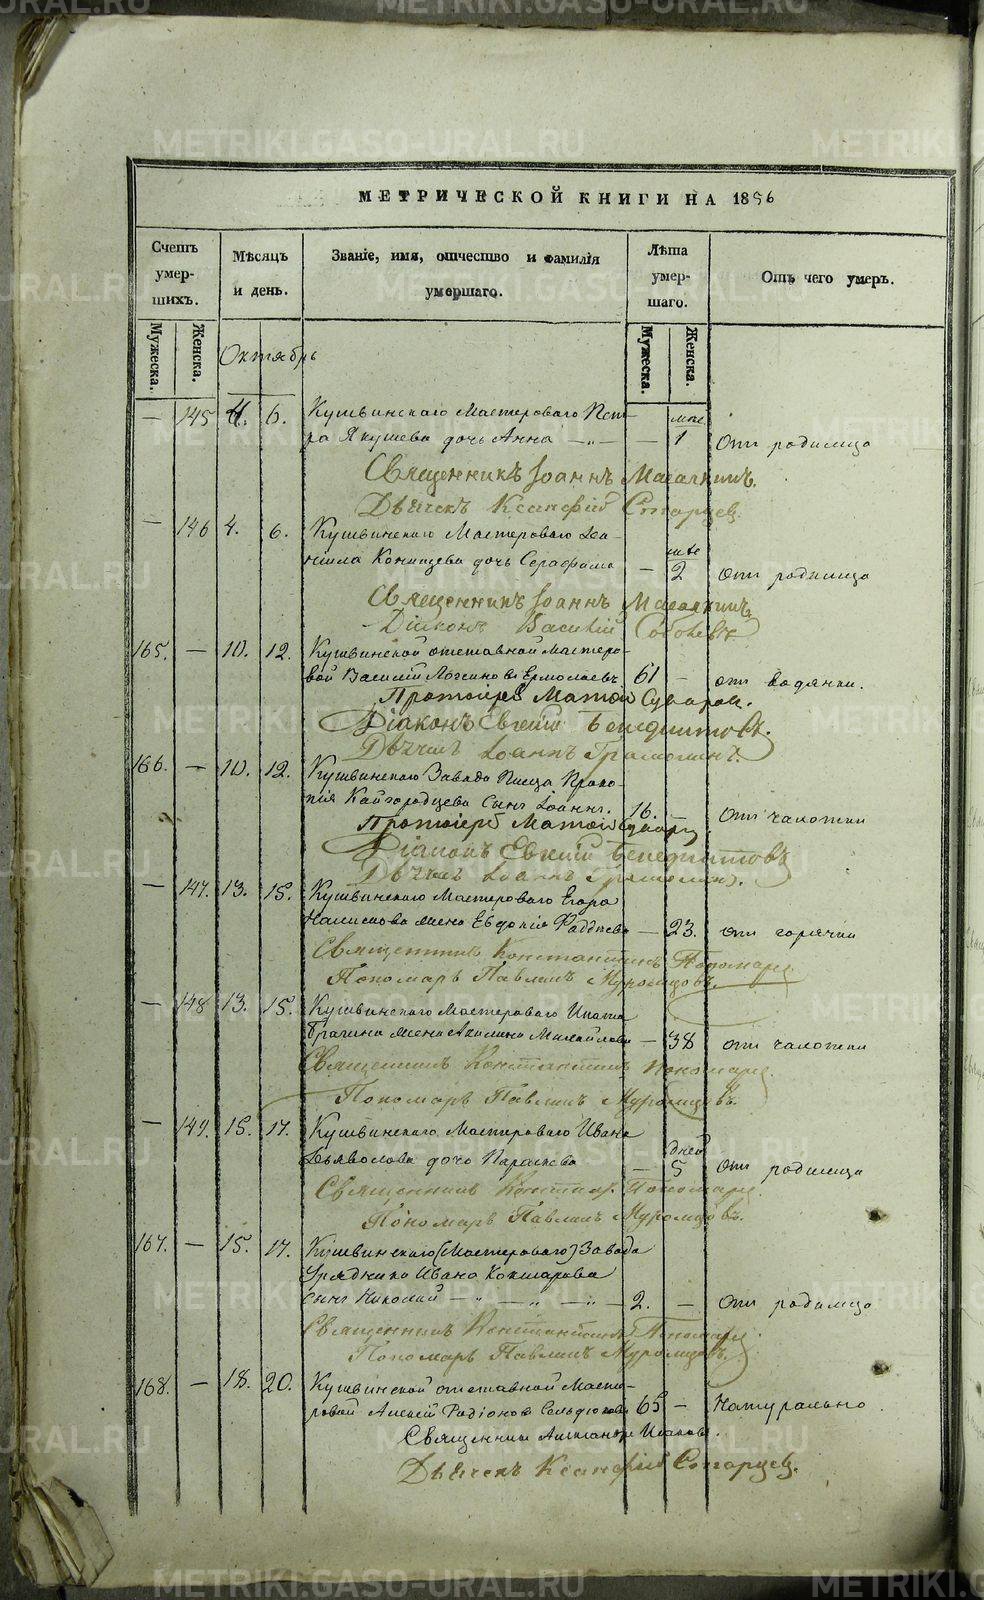 МЕТРИЧЕСКОЙ КНИГИ НА 1856
Счетъ умер- шихъ. Мѣсяцъ и день. Званіе, имя, отчество и фамилія умершаго. Лѣта умер- шаго. Отъ чего умеръ.
Мужеска. Женска. Мужеска. Женска.
Октябрь
— 145 4. 6. Кушвинскаго Мастероваго Пет-
ра Якушева дочь Анна — „ — — 1 Отъ родимца
Священникъ Іоаннъ
Дьячекъ Ксенофонтъ Старцев.
— 146 4. 6. Кушвинскаго Мастероваго Да-
нила дочь Серафима — 2 отъ родимца
Священникъ Іоаннъ
Діаконъ Василій
165. — 10. 12. Кушвинской отставной Мастеро-
вой Василій Логинов Ермолаевъ 61 — отъ водянки.
Протоіерей Матѳей Суворов.
Діаконъ Евгеній Бенедиктовъ.
Дьячекъ Іоаннъ Грамолинъ.
166. — 10. 12. Кушвинскаго Завода Писца Проко-
пія Кайгородцева Сынъ Іоаннъ. 16. — Отъ чахотки
Протоіерей Матѳей Суворов
Діаконъ Евгеній Бенедиктовъ
Дьячекъ Іоаннъ Грамолинъ.
— 147. 13. 15. Кушвинскаго Мастероваго Егора
жена Евдокія Фаддеева — 23. отъ горячки
Священникъ Константинъ Пономарев
Пономарь Павлинъ Муромцовъ.
— 148 13. 15. Кушвинскаго Мастероваго Ипата
Брагина жена Акилина Михайлова — 38 отъ чахотки
Священникъ Константинъ Пономарев.
Пономарь Павлинъ Муромцовъ.
— 149. 15. 17. Кушвинскаго Мастероваго Ивана
дней
Дьяволова дочь Параскева — 5 Отъ родимца
Священникъ Констан. Пономарев.
Пономарь Павлинъ Муромцовъ.
167. — 15. 17. Кушвинскаго (Мастероваго) Завода
Урядника Ивана Кокшарова
Сынъ Николай — „ — „ — „ — 2. — Отъ родимца
Священникъ Константинъ Пономарев.
Пономарь Павлинъ Муромцовъ.
168. — 18. 20. Кушвинской отставной Масте-
ровой Алексѣй Радіонов 65 — Натурально
Священникъ Александръ
Дьячекъ Ксенофонтъ Старцев.
METRIKI.GASO-URAL.RU